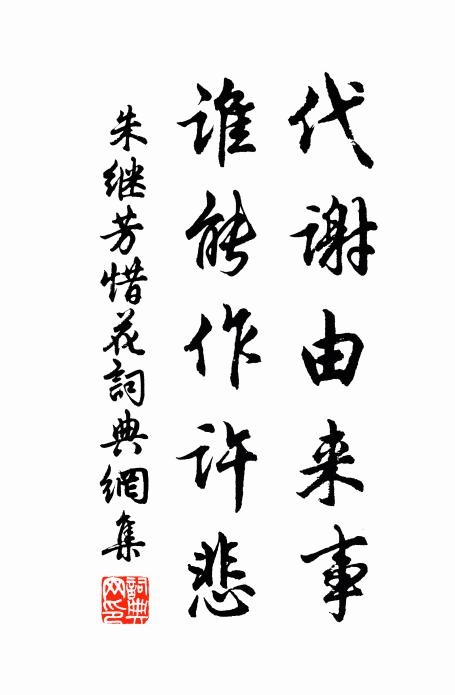 代谢由来事
谁能作许悲
朱继芳惜花詞典網集
詞典網印